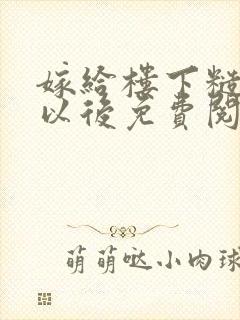 嫁給樓下糙
以後免費閱
萌萌哒小肉球